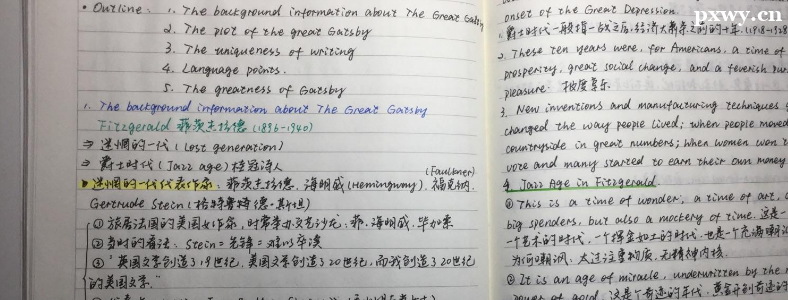 • Outline: 1. The background information about The Great Gatsby
2. The plot of the great Gatsby
3. The uniqueness of writing
4. Language points.
5. The greatness of Gatsby
1. The background information about The Great Gatsby
Fitzgerald 菲茨杰拉德 (1896-1940)
⇒ 迷惘的一代 (Lost generation)
⇒ 爵士时代 (Jazz age) 桂冠诗人
(Faulkner)
迷惘的一代代表作家: 菲茨杰拉德, 海明威 (Hemingway), 福克纳,
Gertrude Stein (格特鲁特德·斯坦)
① 旅居法国的美国女作家, 时常举办文艺沙龙: 菲, 海明威, 毕加索
② 当时的看法: Stein = 先锋 = 难以卒读
③ "英国文学创造了19世纪, 美国文学创造了20世纪, 而我创造了20世纪
的美国文学."
pxwy.cn
onset of the Great Depression.
1. 爵士时代一般指一战之后, 经济大萧条之前的十年. (1918-1928
2. These ten years were, for Americans, a time of
prosperity, great social change, and a feverish
pleasure 极度享乐
3. New inventions and manufacturing techniques
changed the way people lived; when people moved
countryside in great numbers; when women won
vote and many started to earn their own money
4. Jazz Age in Fitzgerald
① This is a time of wonder, a time of art,
big spenders, but also a mockery of time. 这是一
个艺术的时代, 一个挥金如土的时代, 也是一个充满嘲
为何嘲讽, 太过注重物质, 无精神内核.
② It is an age of miracle, underwritten by the
power of gold. 这是个奇迹的年代,